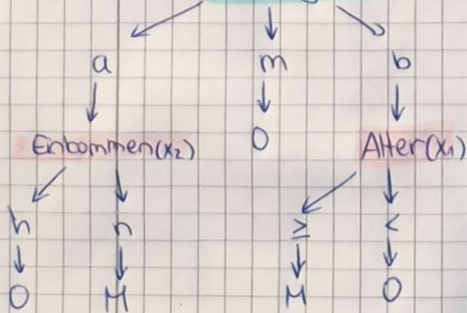 a m b
Einkommen(x₂) O Alter(x₁)
h n ≥ <
O M M O